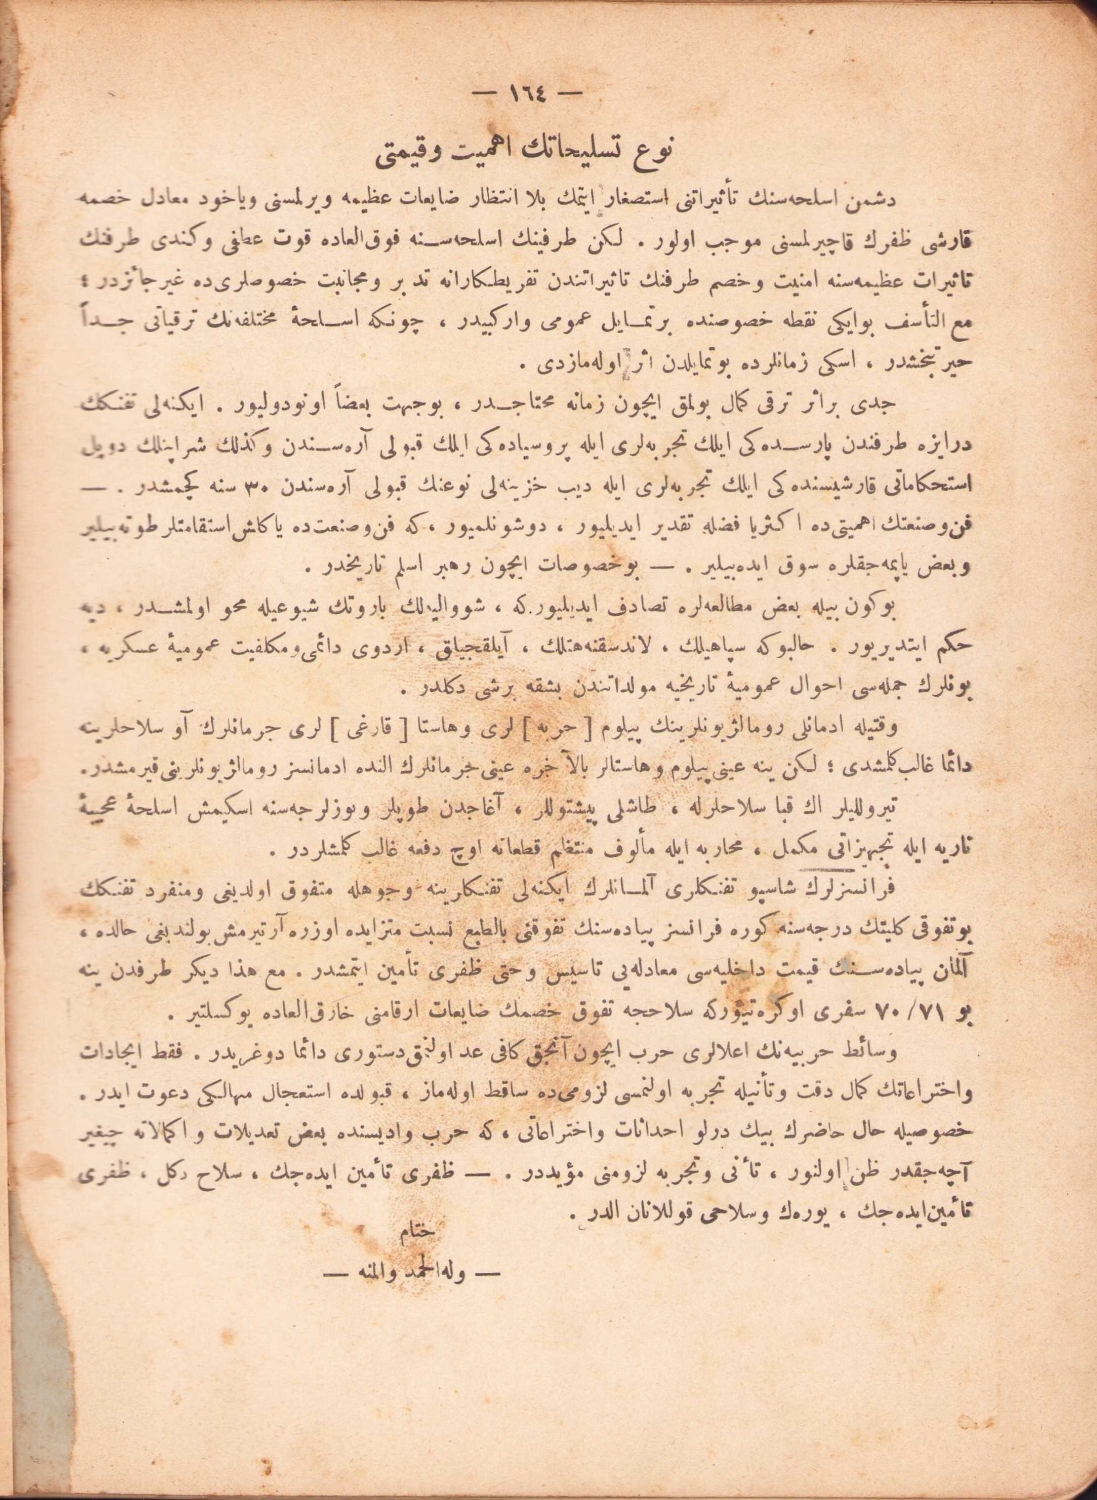 — ١٦٤ —
نوع تسلیحاتك اهمیت وقیمتی
دشمن اسلحه‌سنك تأثیراتنی استصغار ایتمك بلا انتظار ضایعات عظیمه ویرلمسنی ویاخود معادل خصمه
قارشی ظفرك قاچیرلمسنی موجب اولور . لكن طرفینك اسلحه‌سنه فوق‌العاده قوت عطفی وكندی طرفنك
تاثیرات عظیمه‌سنه امنیت وخصم طرفنك تاثیراتندن تفریطكارانه تدبر ومجانبت خصوصلری‌ده غیر جائزدر ؛
مع التأسف بوایكی نقطه خصوصنده برتمایل عمومی واركبیدر ، چونكه اسلحهٔ مختلفه‌نك ترقیاتی جداً
حیرتبخشدر ، اسكی زمانلرده بوتمایلدن اثر اوله‌مازدی .
جدی براثر ترقی كمال بولمق ایچون زمانه محتاجدر ، بوجهت بعضاً اونودولیور . ایكنه‌لی تفنكك
درایزه طرفندن پارسده‌كی ایلك تجربه‌لری ایله پروسیاده‌كی ایلك قبولی آره‌سندن وكذلك شراپنلك دوپل
استحكاماتی قارشیسنده‌كی ایلك تجربه‌لری ایله دیب خزینه‌لی نوعنك قبولی آره‌سندن ٣٠ سنه كچمشدر . —
فن‌وصنعتك اهمیتی‌ده اكثریا فضله تقدیر ایدیلیور ، دوشونلمیور ،كه فن‌وصنعت‌ده یاكلش‌استقامتلر طوته‌بیلیر
وبعض یاپمه‌جقلره سوق ایده‌بیلیر . — بوخصوصات ایچون رهبر اسلم تاریخدر .
بوكون بیله بعض مطالعه‌لره تصادف ایدیلیوركه ، شووالیه‌لك باروتك شیوعیله محو اولمشدر ، دیه
حكم ایتدیریور . حالبوكه سپاهیلك ، لاندسقنه‌هتلك ، آیلقجیلق ، اردوی دائمی‌ومكلفیت عمومیهٔ عسكریه ،
بونلرك جمله‌سی احوال عمومیهٔ تاریخیه مولداتندن بشقه برشی دكلدر .
وقتیله ادمانلی رومالژیونلرینك پیلوم [ حربه ] لری وهاستا [ قارغی ] لری جرمانلرك آو سلاحلرینه
دائما غالب‌كلمشدی ؛ لكن ینه عینی‌پیلوم وهاستالر بالآخره عینی‌جرمانلرك النده ادمانسز رومالژیونلرینی‌قیرمشدر.
تیروللیلر اك قبا سلاحلرله ، طاشلی پیشتوللر ، آغاجدن طوپلر ویوزلرجه‌سنه اسكیمش اسلحهٔ عجیبهٔ
ناریه ایله تجهیزاتی مكمل ، محاربه ایله مألوف منتظم قطعاته اوچ دفعه غالب كلمشلردر .
فرانسزلرك شاسپو تفنكلری آلمانلرك ایكنه‌لی تفنكلرینه وجوهله متفوق اولدیغی ومنفرد تفنكك
بوتفوقی كلیتك درجه‌سنه كوره فرانسز پیاده‌سنك تفوقنی بالطبع نسبت متزایده اوزره آرتیرمش‌بولندیغی حالده ،
آلمان پیاده‌سنك قیمت داخلیه‌سی معادله‌یی تاسیس وحتی ظفری تأمین ایتمشدر . مع هذا دیكر طرفدن ینه
بو ٧٠/٧١ سفری اوكره‌تیوركه سلاحجه تفوق خصمك ضایعات ارقامنی خارق‌العاده یوكسلتیر .
وسائط حربیه‌نك اعلالری حرب ایچون آنجق كافی عد اولنمق‌دستوری دائما دوغریدر . فقط ایجادات
واختراعاتك كمال دقت وتأنیله تجربه اولنمسی لزومی‌ده ساقط اوله‌ماز ، قبولده استعجال مهالكی دعوت ایدر .
خصوصیله حال حاضرك بیك درلو احداثات واختراعاتی ،كه حرب وادیسنده بعض تعدیلات و اكمالاته چیغیر
آچه‌جقدر ظن اولنور ، تأنی وتجربه لزومنی مؤیددر . — ظفری تأمین ایده‌جك ، سلاح دكل ، ظفری
تأمین‌ایده‌جك ، یوره‌ك وسلاحی قوللانان الدر .
ختام
— وله‌الحمد والمنه —